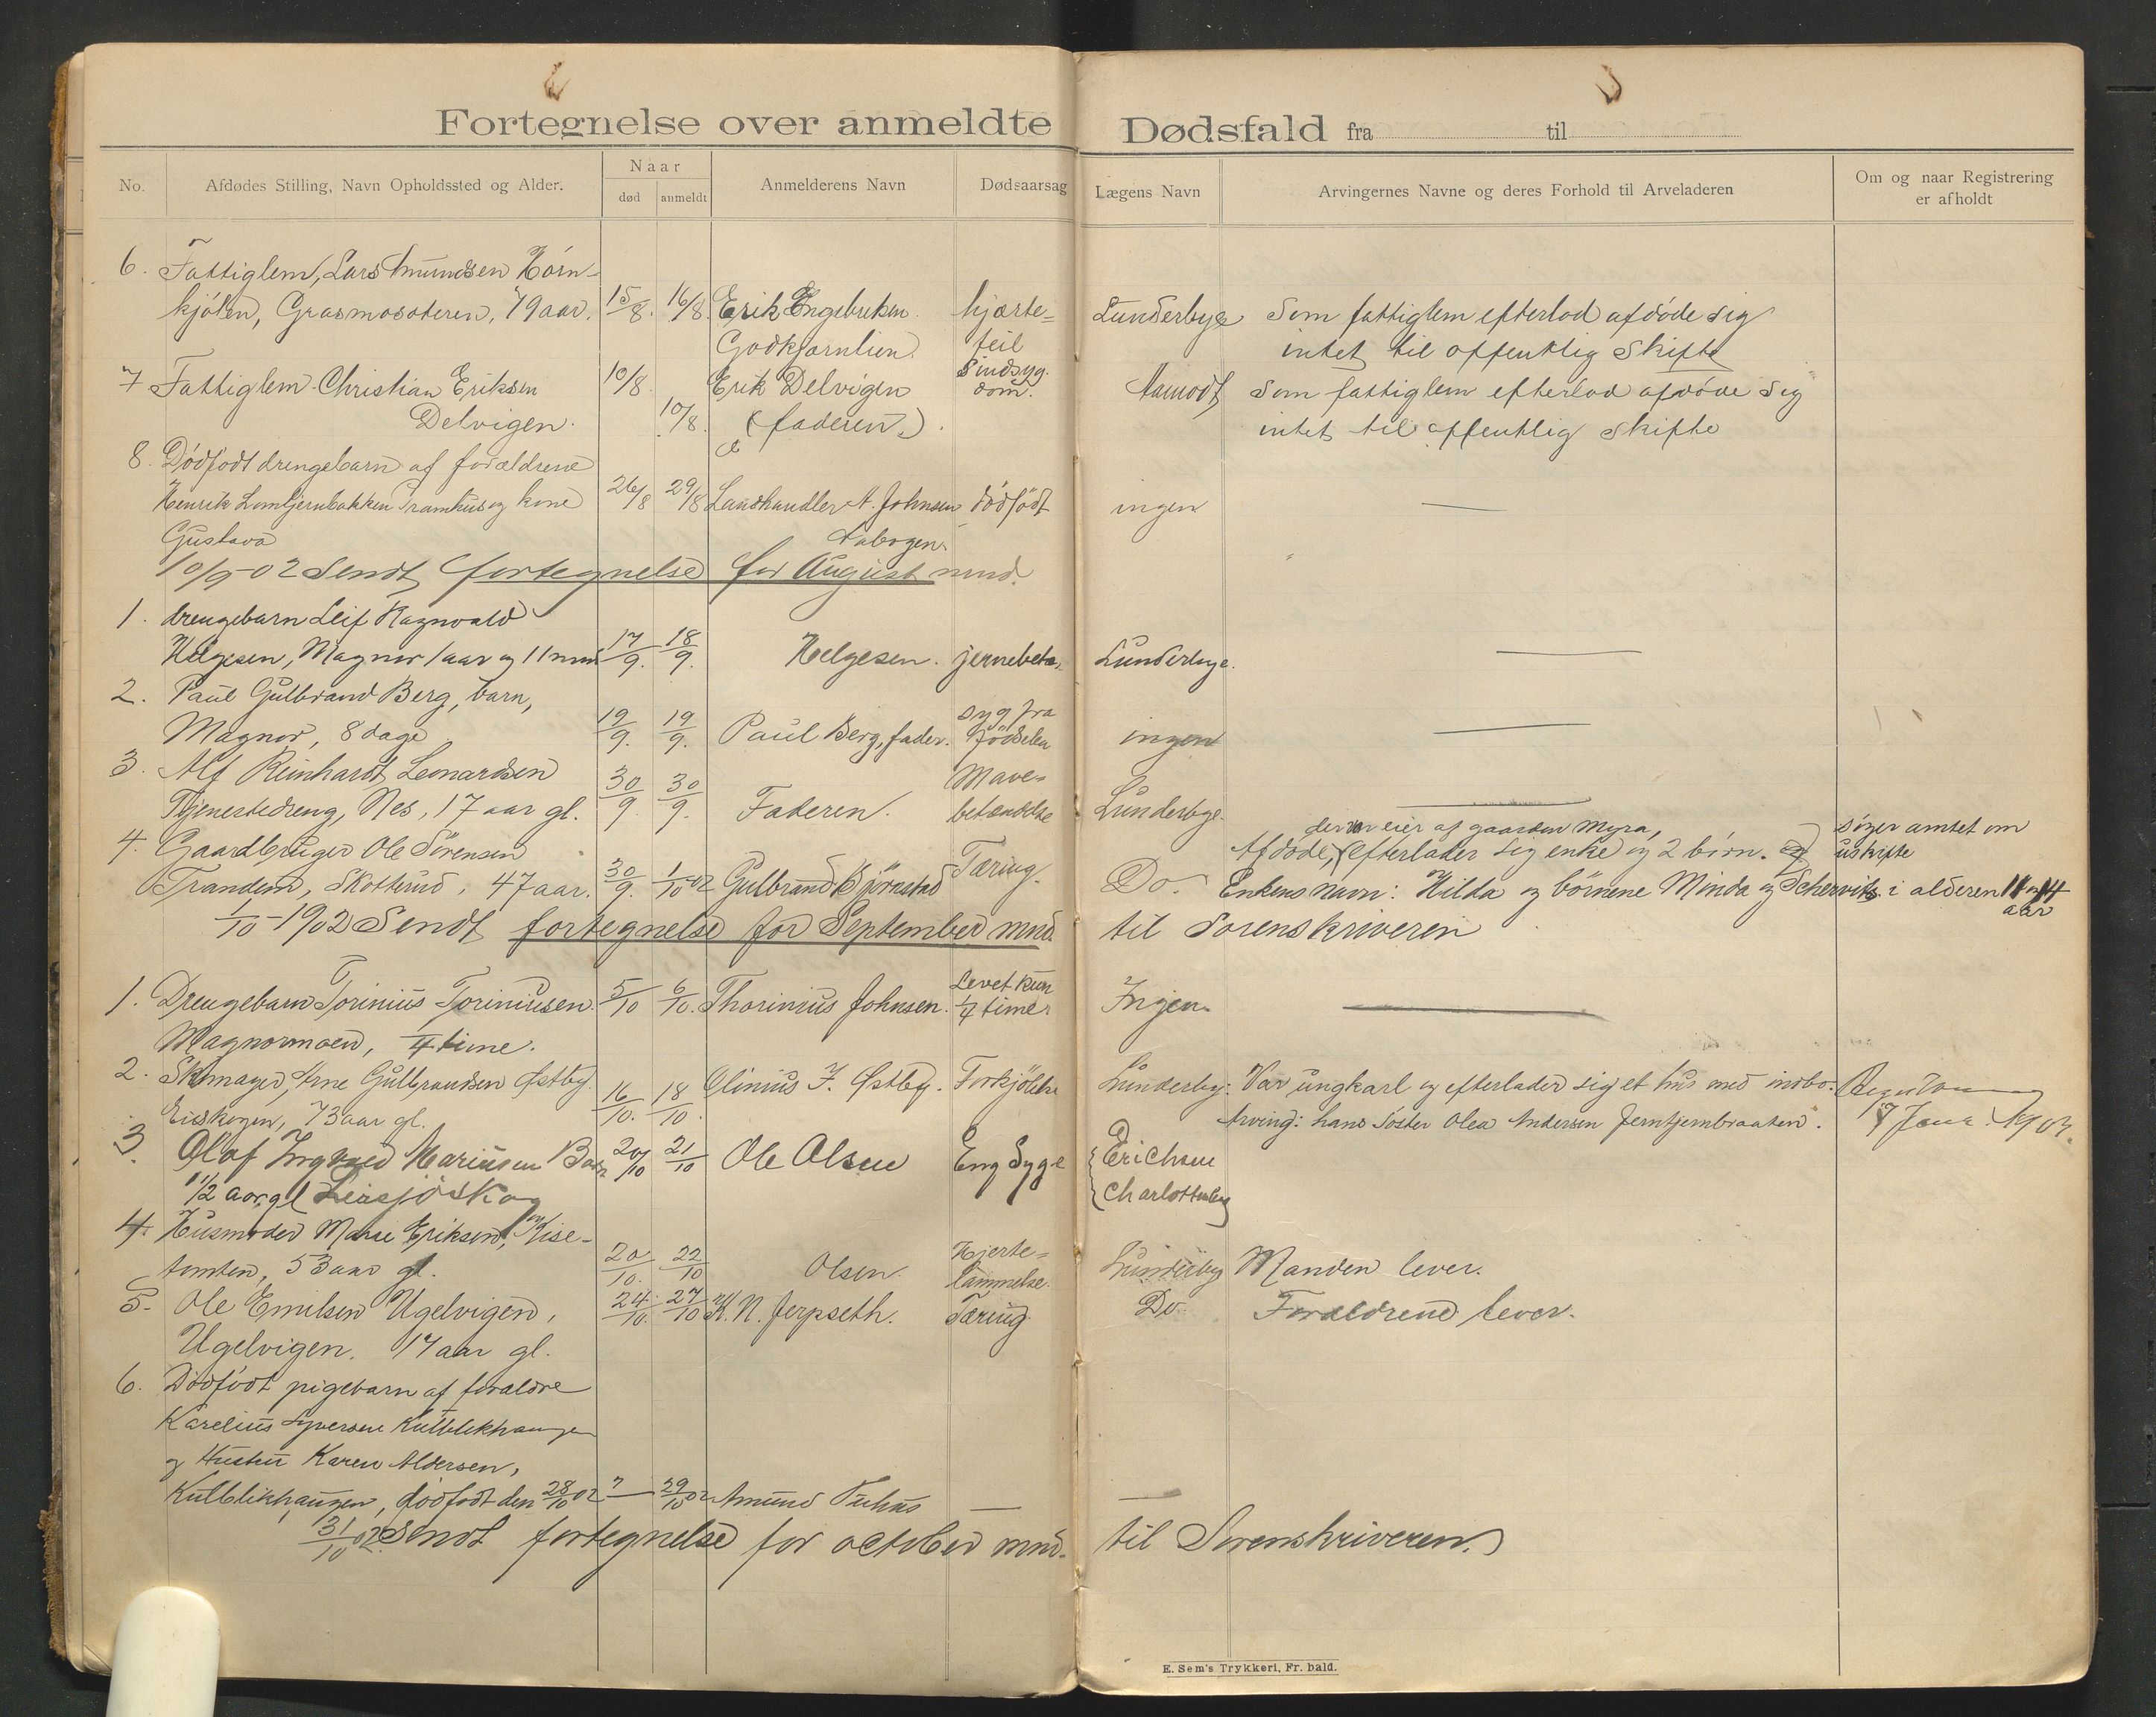 Fortegnelse over anmeldte Dødsfald fra til
No. Afdødes Stilling, Navn Opholdssted og Alder. Naar død anmeldt Anmelderens Navn Dødsaarsag Lægens Navn Arvingernes Navne og deres Forhold til Arveladeren Om og naar Registrering er afholdt
6. Fattiglem, Lars Amundsen
kjølen, 79 aar. 15/8. 16/8. Erik Engebretsen hjærte- Lunderbye Som fattiglem efterlod afdøde sig
feil intet til offentlig Skifte
7 Fattiglem Christian Eriksen 10/8. Erik Delvigen Sindsyg- Aamodt Som fattiglem efterlod afdøde sig
Delvigen. 10/8. (faderen.) dom. intet til offentlig Skifte
8. Dødfødt drengebarn af forældrene
Henrik Lomtjernbakken og kone 26/8 29/8 Landhandler A. Johnsen dødfødt ingen —
Gustava Aabogen.
10/9-02 Sendt fortegnelse for August mnd.
1. drengebarn Leif Ragnvald
Helgesen, Magnor 1 aar og 11 mnd 17/9. 18/9. Helgesen. jernebeta. Lunderbye. —
2. Paul Gulbrand Berg, barn, syg fra
Magnor, 8 dage 19/9. 19/9. Paul Berg, fader. fødselen ingen —
3. Alf Reinhardt Leonardsen Mave-
Tjenestedreng, Nes, 17 aar gl. 30/9. 30/9. Faderen. betændelse Lunderbye. —
der var eier af gaarden Myra, søger amtet om
4 Gaardbruger Ole Sørensen Tæring. Afdøde, efterlader sig enke og 2 børn. uskifte
Trandem, Skotterud, 47 aar. 30/9. 1/10 02 Gulbrand Bjørnstad Do. Enkens navn: Hilda og børnene Minda og i alderen 11 og 14
aar
1/10-1902 Sendt fortegnelse for September mnd. til Sorenskriveren
1. Drengebarn Torinius Toriniusen. 5/10 6/10. Thorinius Johnsen. Levet kun Ingen. —
Magnormoen, 1/4 time. 1/4 time
2. Skomager, Arne Gulbrandsen Østby. Olinius J. Østby. Forkjølelse Lunderby. Var ungkarl og efterlader sig et hus med indbo.
Eidskogen, 73 aar gl. 16/10. 18/10. Arving: hans søster Olea Andersen Jerntjernbraaten. 7 Janr. 1903.
3. Olaf Ingvald Mariusen Barn 20/10 21/10 Ole Olsen Eng Syge Erichsen
1/2 aar gl Leirsjöskog Charlottenberg
4. Husmoder Marie Eriksen, Kise-
tomten, 53 aar gl. 20/10. 22/10 Olsen. Hjerte- Lunderby Manden lever.
lammelse.
5. Ole Emilsen Ugelvigen, 24/10. 27/10 K. N. Jerpseth. Tæring Do Forældrene lever.
Ugelvigen. 17 aar gl.
6. Dødfødt pigebarn af forældre
Karelius Syversen Kulblikhaugen
og Hustru Karen Aldersen,
Kulblikhaugen, dødfødt den 28/10 02 — 29/10 02 Amund — —
31/10 02 Sendt fortegnelse for october mnd. til Sorenskriveren.
E. Sem's Trykkeri, Fr.hald.